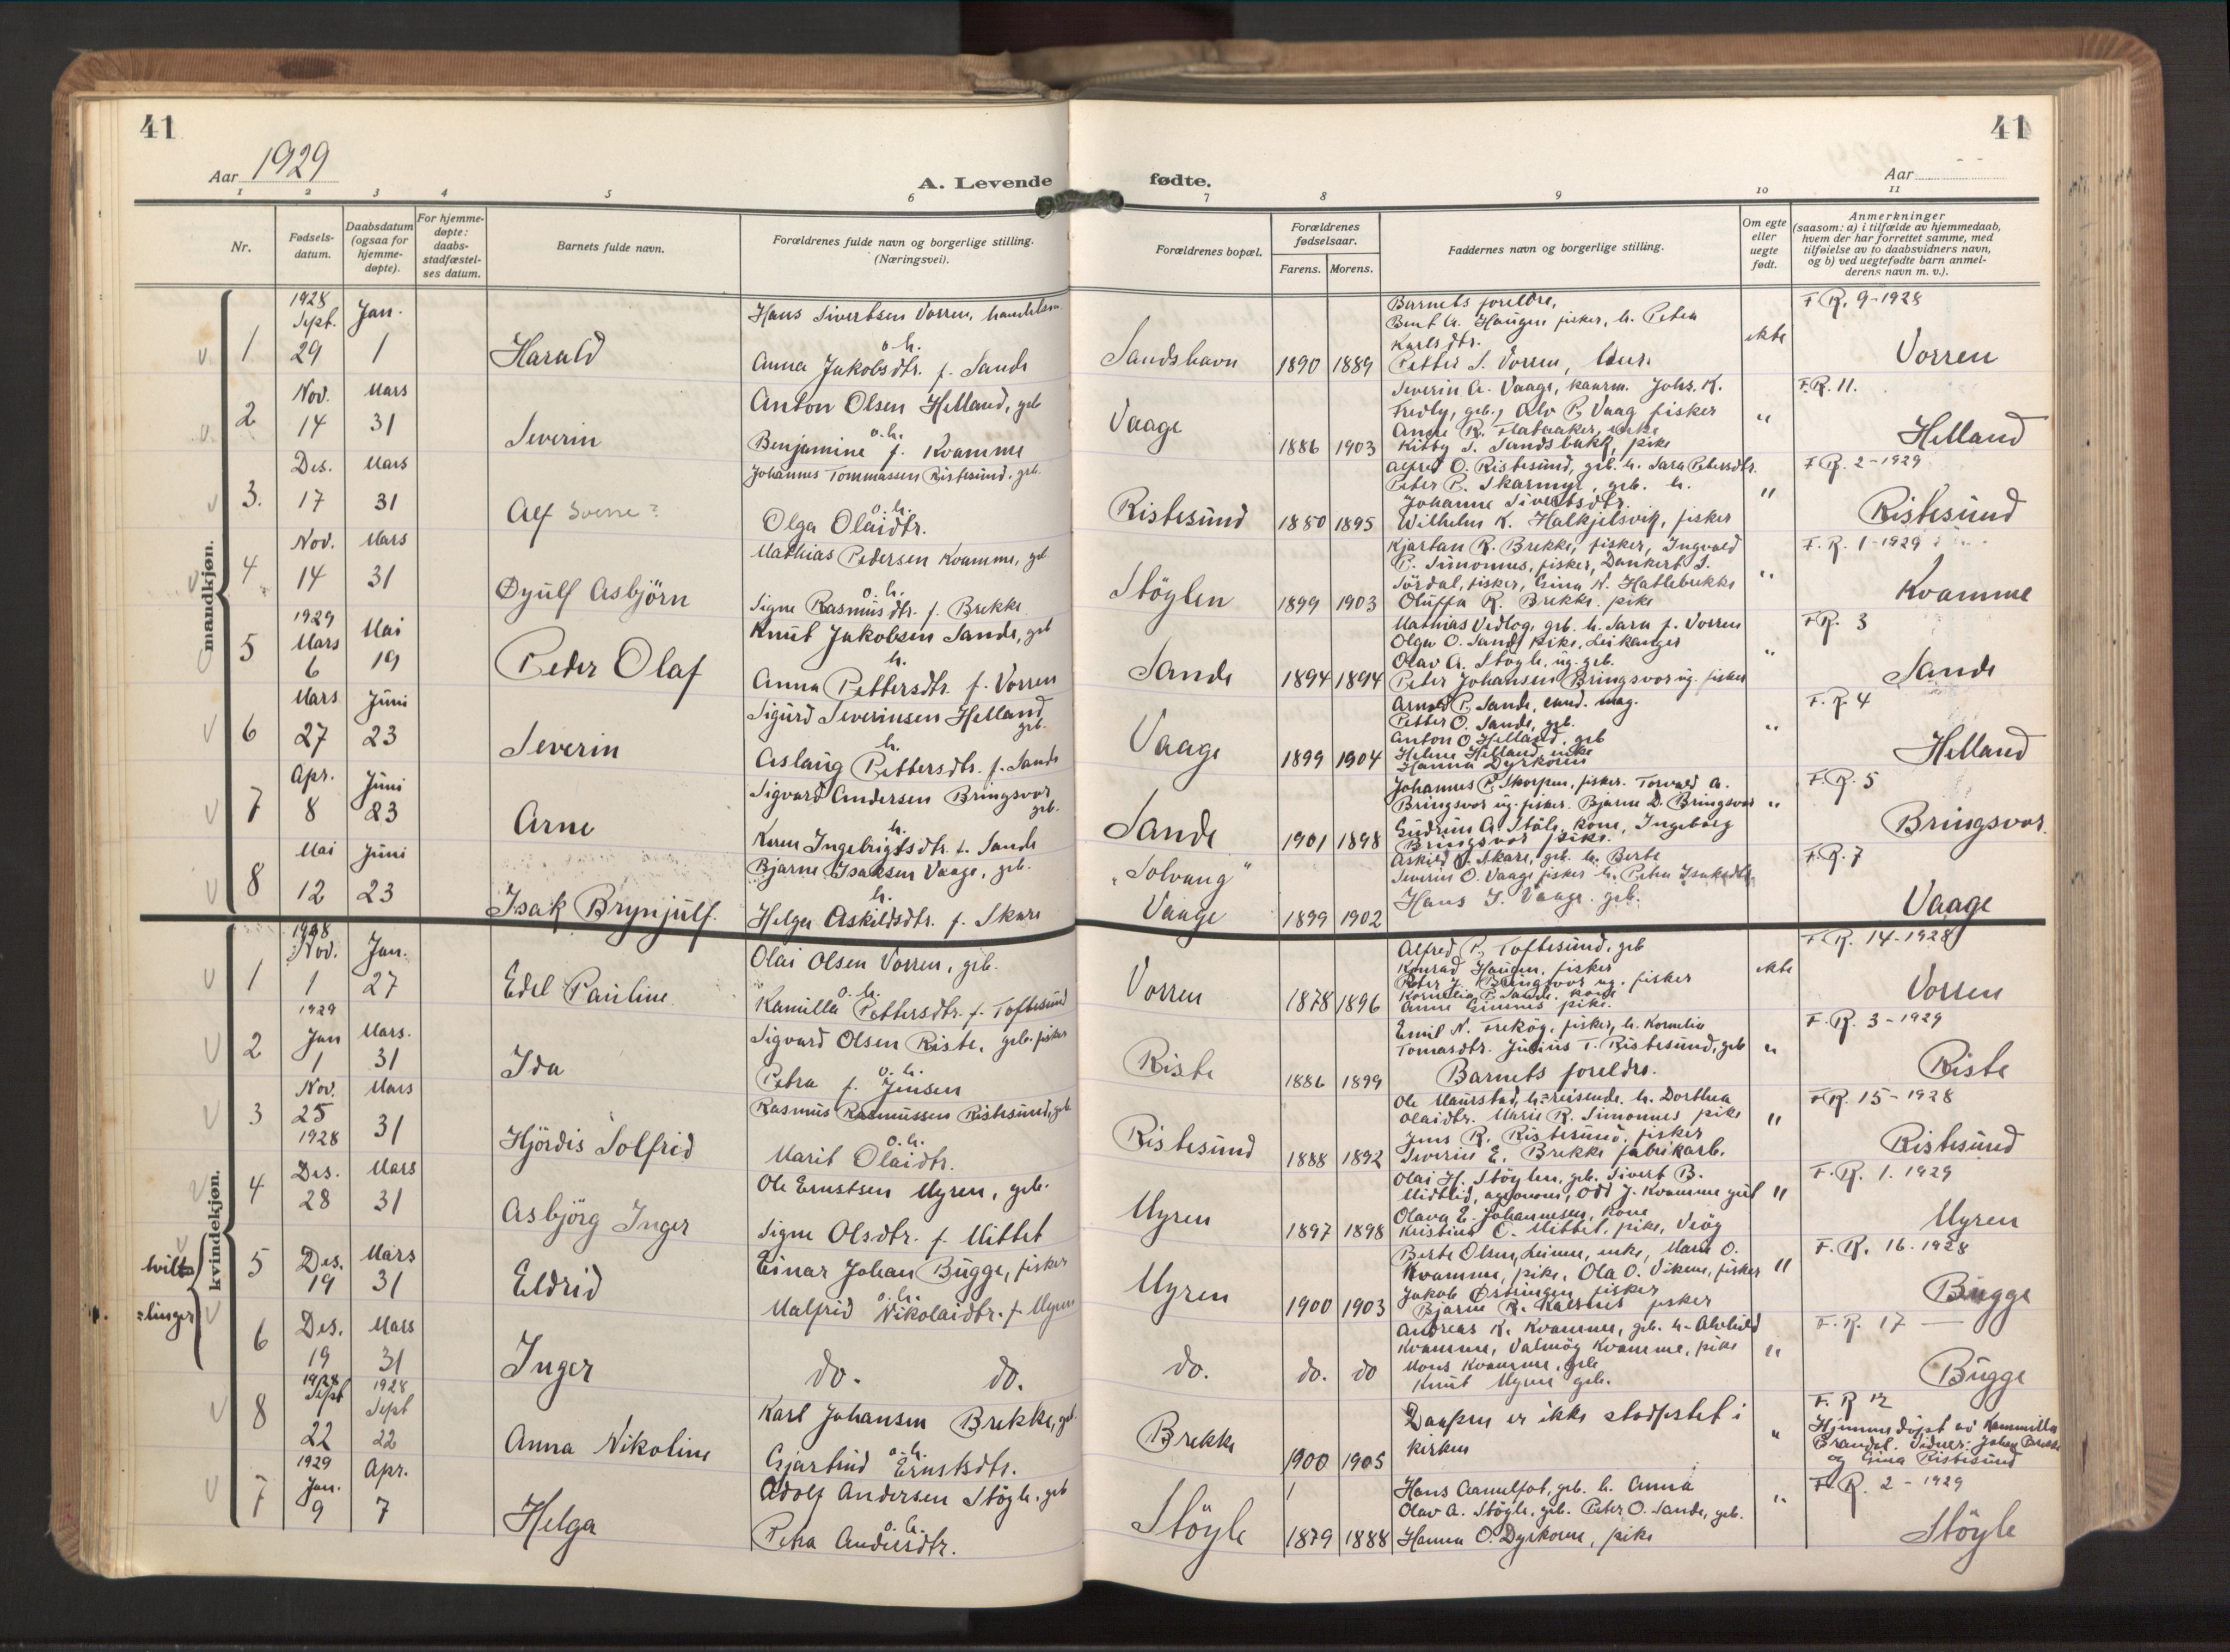 41
41
Aar 1929
A. Levende fødte.
Aar
1 2 3 4 5 6 7 8 9 10 11
Nr.
Fødsels-
datum.
Daabsdatum
(ogsaa for
hjemme-
døpte).
For hjemme-
døpte:
daabs-
stadfæstel-
ses datum.
Barnets fulde navn.
Forældrenes fulde navn og borgerlige stilling.
(Næringsvei).
Forældrenes bopæl.
Forældrenes
fødselsaar.
Farens. Morens.
Faddernes navn og borgerlige stilling.
Om egte
eller
uegte
født.
Anmerkninger
(saasom: a) i tilfælde av hjemmedaab,
hvem der har forrettet samme, med
tilføielse av to daabsvidners navn,
og b) ved uegtefødte barn anmel-
derens navn m. v.).
mandkjøn.
1928
Sept. Jan.
1 29 1 Harald
Hans Sivertsen Vorren,
o. h.
Anna Jakobsdtr. f. Sande
Sandshavn 1890 1889
Barnets foreldre,
Bent A. Haugen fisker, h. Petra
Karlsdtr.
Petter S. Vorren,
ekte
F.R. 9-1928
Vorren
Nov. Mars
2 14 31 Severin
Anton Olsen Helland, grb
o. h.
Benjamine f. Kvamme
Vaage 1886 1903
Severin A. Vaage, kaarm. Johs. K.
Fredly, grb., Alv P. Vaag fisker
Anne R. Flataaker, enke
Kitty S. Sandsbakk, pike
"
F.R. 11.
Helland
Des. Mars
3. 17 31 Alf Sverre?
Johannes Tommassen Ristesund, grb.
o. h.
Olga Olaidtr.
Ristesund 1880 1895
Alfred O. Ristesund, grb. h. Sara Petersdtr.
Peter P. Skarmyr, grb. h.
Johanne Sivertsdtr.
Wilhelm K. Halkjelsvik, fisker
"
F.R. 2-1929
Ristesund
Nov. Mars
4 14 31 Øyulf Asbjörn
Mathias Pedersen Kvamme, grb
o. h.
Signe Rasmusdtr. f. Brekke
Stöylen 1899 1903
Kjartan R. Brekke, fisker, Ingvald
P. Simonnes, fisker, Dankert S.
Sördal, fisker, Gina N. Hatlebrekke
Oluffa R. Brekke. pike
"
F. R. 1-1929
Kvamme
1929
Mars Mai
5 6 19 Peder Olaf
Knut Jakobsen Sande, grb
h.
Anna Pettersdtr. f. Vorren
Sande 1894 1894
Mathias Vedlog, grb. h. Sara f. Vorren
Olga O. Sande pike, Leikanger
Olav A. Stöyle, ug. grb.
Peter Johansen Bringsvor ug. fisker
"
F.R. 3
Sande
Mars Juni
6 27 23 Severin
Sigurd Severinsen Helland
grb.
h.
Aslaug Pettersdtr. f. Sande
Vaage 1899 1904
Arnold P. Sande, cand. mag.
Petter O. Sande, grb.
Anton O. Helland, grb
Helene Helland, enke
Hanna Dyrkorn
"
F. R. 4
Helland
Apr. Juni
7 8 23 Arne
Sigvard Andersen Bringsvor
grb.
h.
Karen Ingebrigtsdtr. f. Sande
Sande 1901 1898
Johannes P. Skorpen, fisker. Torvald A.
Bringsvor ug. fisker. Bjarne D. Bringsvor
Gudrun A. Støle, kone, Ingeborg
Bringsvor pike.
"
F. R. 5
Bringsvor.
Mai Juni
8 12 23 Isak Brynjulf.
Bjarne Isaksen Vaage, grb.
h.
Helga Askildsdtr. f. Skare
"Solvang"
Vaage 1899 1902
Askild K. Skare, grb. h. Berte
Severin O. Vaage fisker h. Petra Isaksdtr.
Hans I. Vaage. grb.
F. R. 7
Vaage
kvindekjøn.
1928
Nov. Jan.
1 1 27 Edel Pauline
Olai Olsen Vorren, grb.
o. h.
Kamilla Pettersdtr. f. Toftesund
Vorren 1878 1896
Alfred P. Toftesund, grb
Konrad Haugen, fisker
Peter J. Bringsvor ug. fisker
Kornelia P. Sande. kone
Anne Gimnes pike.
ekte
F. R. 14-1928
Vorren
1929
Jan Mars.
2 1 31 Ida
Sigvard Olsen Riste, grb. fisker
o. h.
Petra f. Jensen
Riste 1886 1899
Emil N. Freköy, fisker, h. Kornelia
Tomasdtr. Julius T. Ristesund, grb
Barnets foreldre.
"
F. R. 3-1929
Riste
Nov. Mars
3 25 31 Hjördis Solfrid
1928
Rasmus Rasmussen Ristesund, grb
o. h.
Marit Olaidtr.
Ristesund 1888 1892
Ole Maurstad, h-reisende. h. Dorthea
Olaidtr. Marie R. Simonnes pike
Jens R. Ristesund, fisker
Severin E. Brekke fabrikarb.
"
F.R. 15-1928
Ristesund
Des. Mars
4 28 31 Asbjörg Inger
Ole Ernstsen Myren, grb.
Signe Olsdtr. f. Mittet
Myren 1897 1898
Olai H. Stöylen, grb. Sivert B.
Midtlid, agronom, Odd J. Kvamme gut
Olava E. Johannesen, kone
Kristine O. Mittet, pike, Veöy
"
F. R. 1. 1929
Myren
tvill
=linger
5 Des. Mars
19 31 Eldrid
Einar Johan Bugge, fisker
o. h.
Malfrid Nikolaidtr. f. Myren
Myren 1900 1903
Berte Olsen, Leinne, enke, Marie O.
Kvamme, pike, Ola O. Vikene, fisker
Jakob Østringen fisker
Bjarne R. Kalsnes fisker
"
F. R. 16. 1928
Bugge
6 Des. Mars
19 31 Inger
do. do.
do. do. do
Andreas K. Kvamme, grb. h. Alvhild
Kvamme, Valmöy Kvamme, pike
Mons Kvamme, grb
Knut Myren grb.
"
F. R. 17 —
Bugge
1928 1928
Sept Sept
8 22 22 Anna Nikoline
Karl Johansen Brekke, grb
o. h.
Gjartrud Ernstsdtr.
Brekke 1900 1905
Daapen er ikke stadfestet i
kirken
"
F. R 12
Hjemmedöpt av Kammilla
Brandal. Vidner: Johan Brekke
og Gina Ristesund
1929
Jan. Apr.
7 9 7 Helga
Adolf Andersen Stöyle, grb
o. h.
Petra Andersdtr.
Stöyle 1879 1888
Hans Aamelfot, grb. h. Anna
Olav A. Stöyle, grb. Peter O. Sande, grb.
Hanna O. Dyrkorn, pike
"
F. R. 2-1929
Stöyle